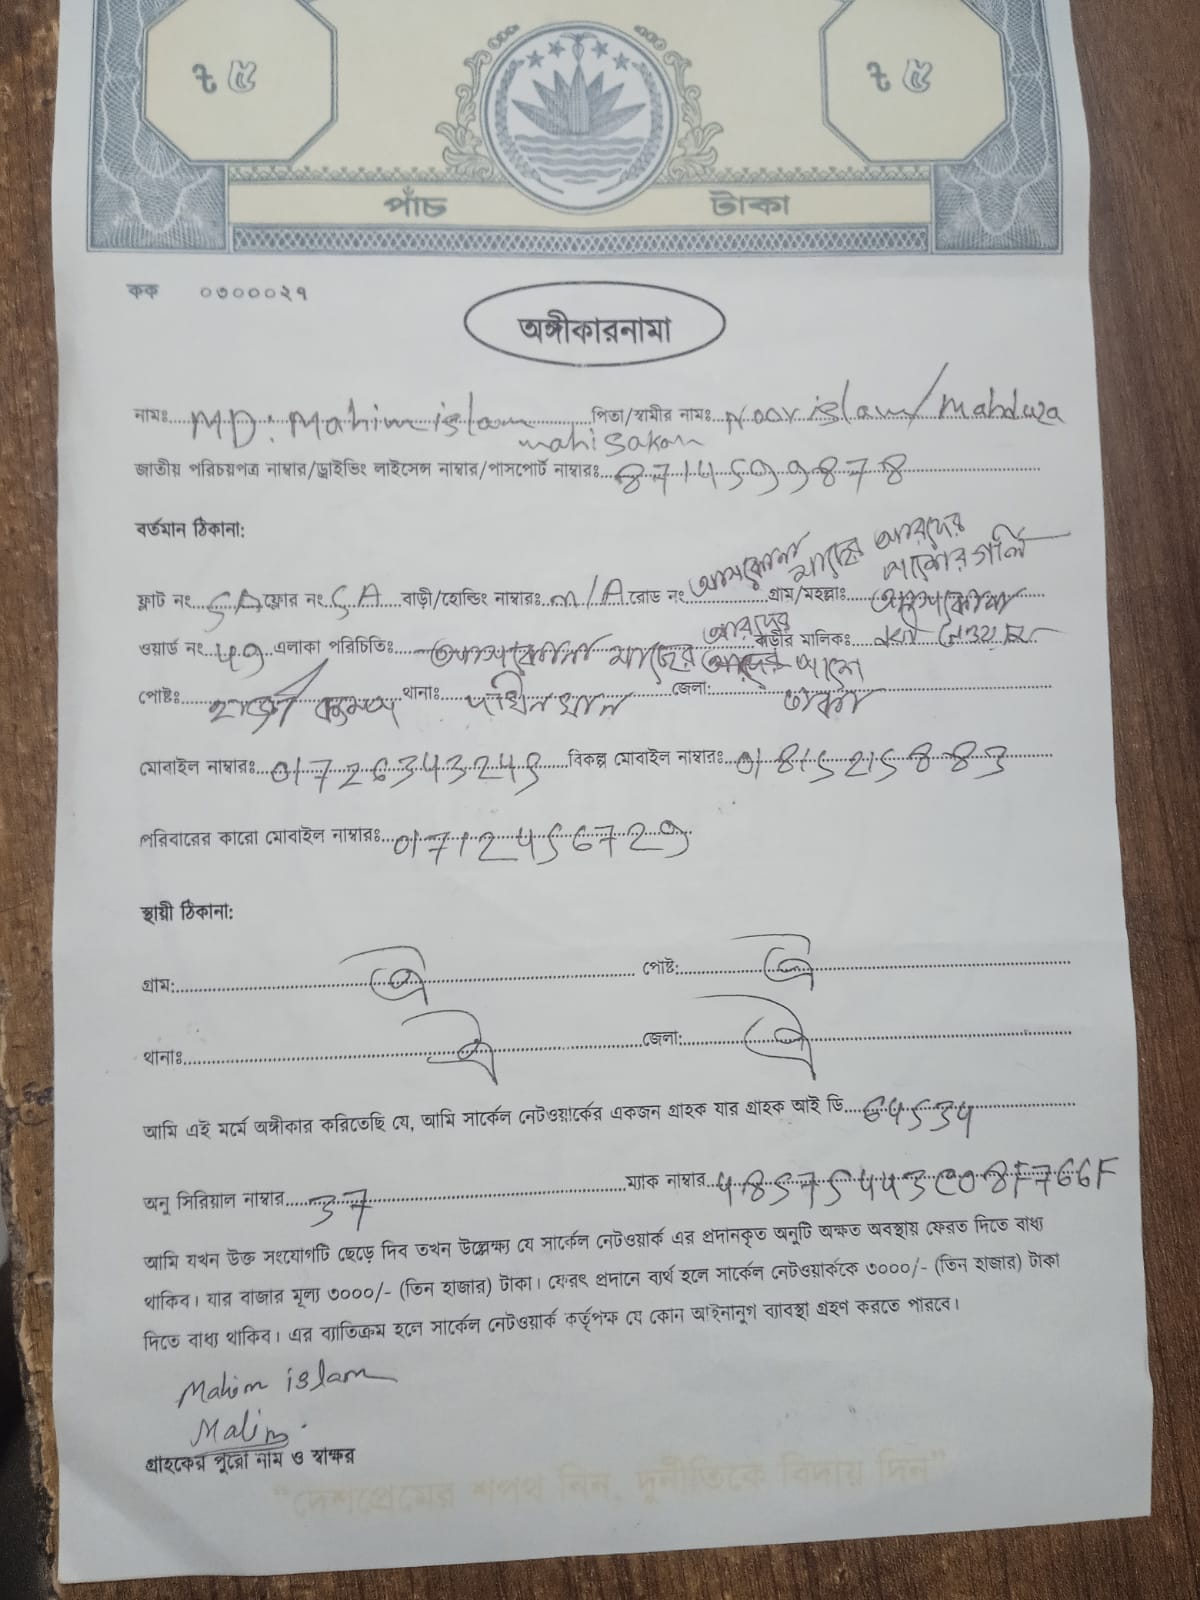 ৳ ৫ ৳ ৫
পাঁচ টাকা
কক ০৩০০০২৭
অঙ্গীকারনামা
নামঃ MD: Mahim islam পিতা/স্বামীর নামঃ Noor islam/Mahduza
জাতীয় পরিচয়পত্র নাম্বার/ড্রাইভিং লাইসেন্স নাম্বার/পাসপোর্ট নাম্বারঃ 8714599878
বর্তমান ঠিকানা:
ফ্লাট নং 5A ফ্লোর নং 5A বাড়ী/হোল্ডিং নাম্বারঃ m/A রোড নং গ্রাম/মহল্লাঃ
ওয়ার্ড নং 49 এলাকা পরিচিতিঃ বাড়ীর মালিকঃ
পোষ্টঃ হাজী ক্যাম্প থানাঃ দক্ষিনখান জেলা: ঢাকা
মোবাইল নাম্বারঃ 01726343245 বিকল্প মোবাইল নাম্বারঃ 01815215883
পরিবারের কারো মোবাইল নাম্বারঃ 01712456729
স্থায়ী ঠিকানা:
গ্রাম: ঐ পোষ্ট: ঐ
থানাঃ ঐ জেলা: ঐ
আমি এই মর্মে অঙ্গীকার করিতেছি যে, আমি সার্কেল নেটওয়ার্কের একজন গ্রাহক যার গ্রাহক আই ডি 64534
অনু সিরিয়াল নাম্বার 37 ম্যাক নাম্বার 48575443C08F766F
আমি যখন উক্ত সংযোগটি ছেড়ে দিব তখন উল্লেক্ষ্য যে সার্কেল নেটওয়ার্ক এর প্রদানকৃত অনুটি অক্ষত অবস্থায় ফেরত দিতে বাধ্য
থাকিব। যার বাজার মূল্য ৩০০০/- (তিন হাজার) টাকা। ফেরৎ প্রদানে ব্যর্থ হলে সার্কেল নেটওয়ার্ককে ৩০০০/- (তিন হাজার) টাকা
দিতে বাধ্য থাকিব। এর ব্যাতিক্রম হলে সার্কেল নেটওয়ার্ক কর্তৃপক্ষ যে কোন আইনানুগ ব্যাবস্থা গ্রহণ করতে পারবে।
Mahim islam
Mahim
গ্রাহকের পুরো নাম ও স্বাক্ষর
"দেশপ্রেমের শপথ নিন, দুর্নীতিকে বিদায় দিন"